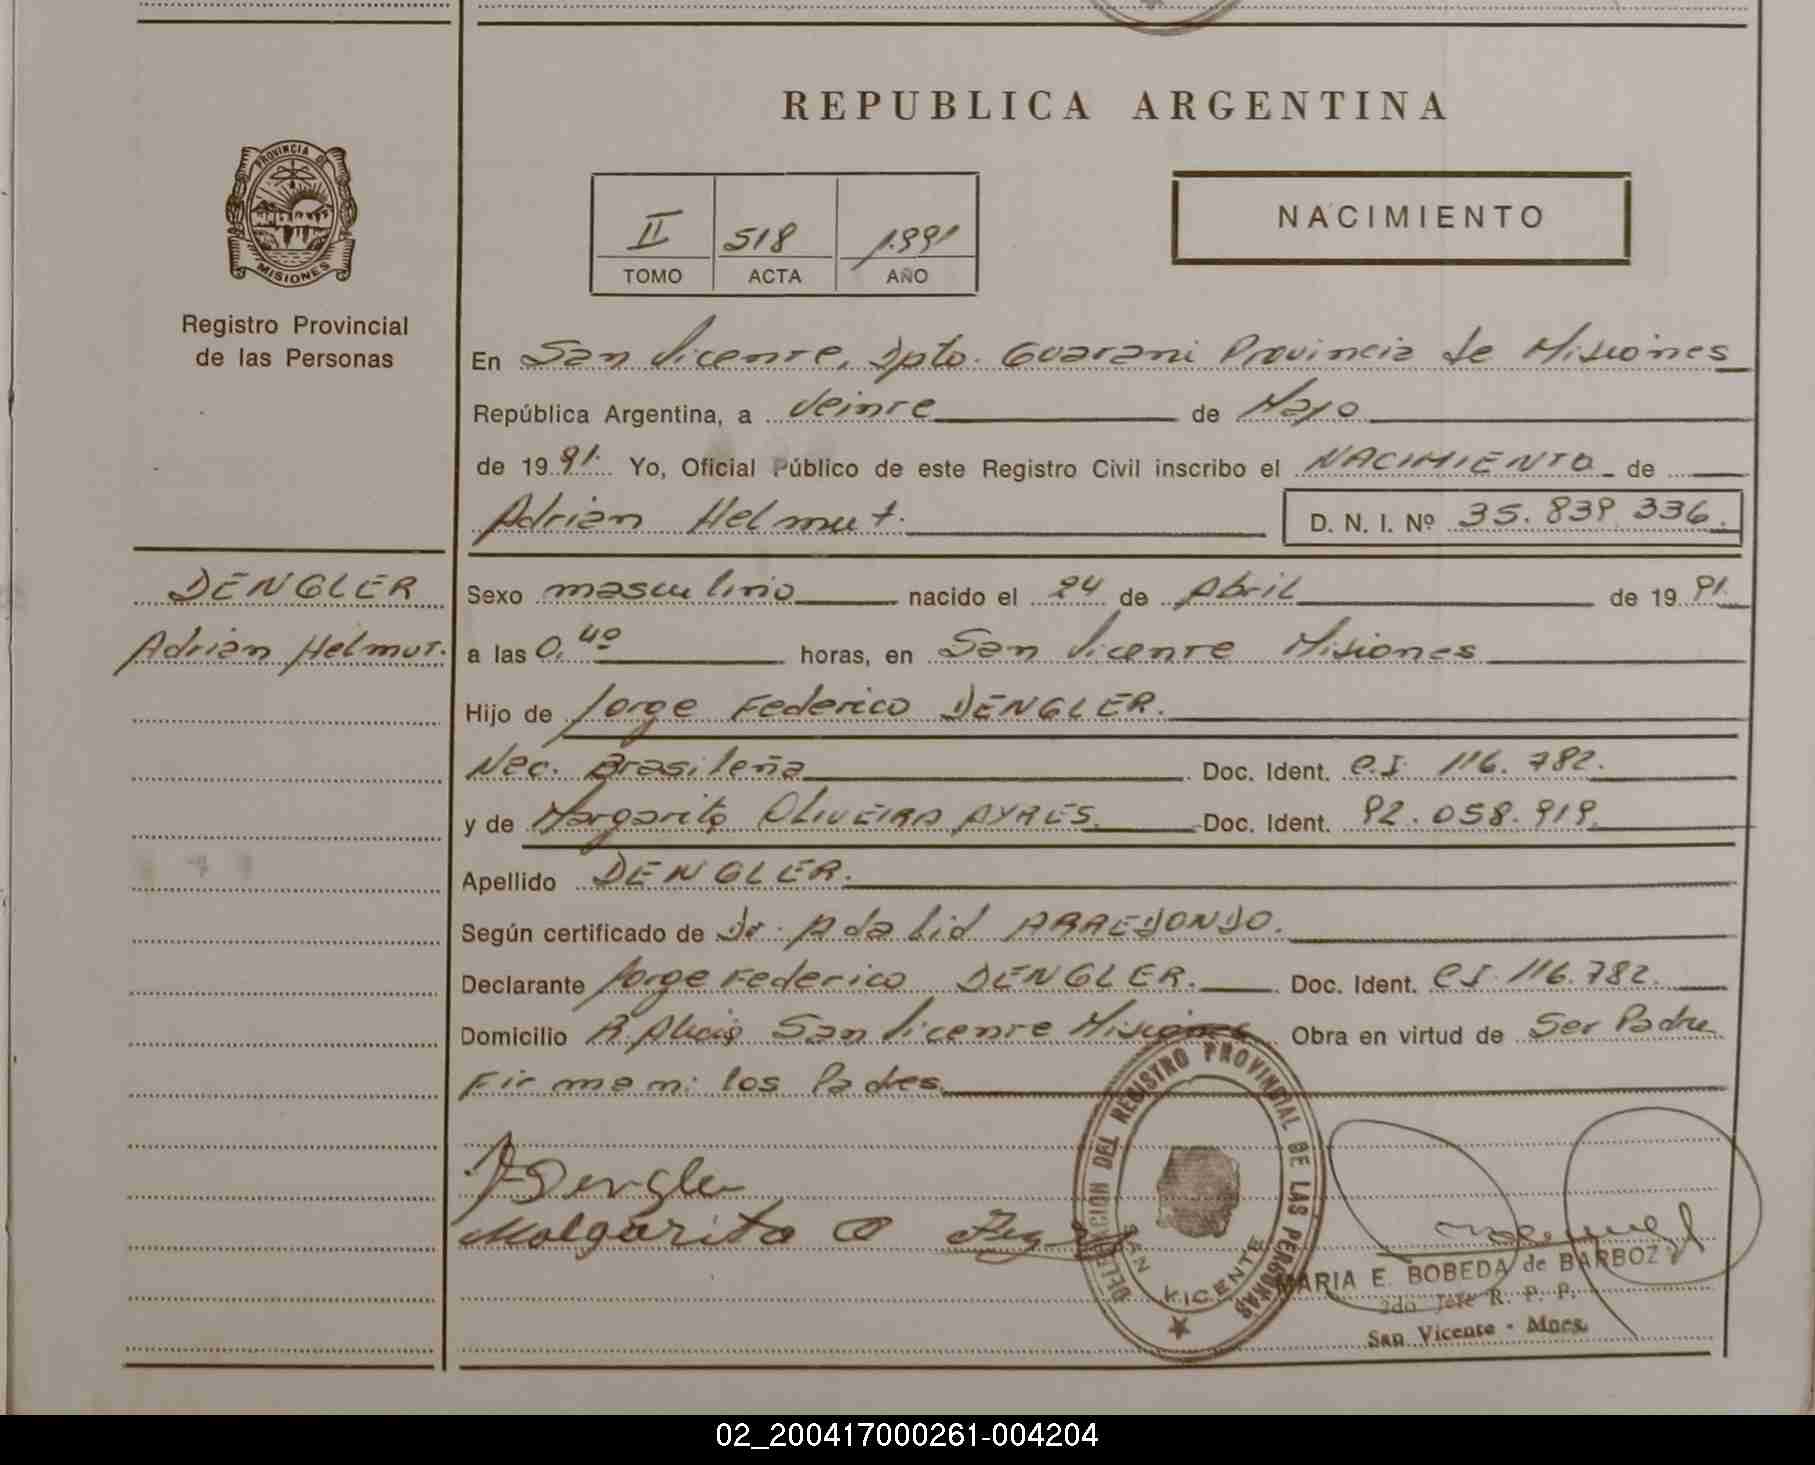 REPUBLICA ARGENTINA
PROVINCIA DE
MISIONES
Registro Provincial
de las Personas
II 518 1.991
TOMO ACTA AÑO
NACIMIENTO
En San Vicente, Dpto. Guarani Provincia de Misiones
República Argentina, a Veinte de Mayo
de 1991. Yo, Oficial Público de este Registro Civil inscribo el NACIMIENTO de
Adrian Helmut. D. N. I. Nº 35.839.336.
DENGLER
Adrian Helmut.
Sexo masculino nacido el 24 de Abril de 1991.
a las 0,40 horas, en San Vicente Misiones
Hijo de Jorge Federico DENGLER.
Nac. Brasileña Doc. Ident. C.I. 116.782.
y de Margarita OLIVEIRA AYRES. Doc. Ident. 92.058.919.
Apellido DENGLER.
Según certificado de Dr. Adalid ARREDONDO.
Declarante Jorge Federico DENGLER. Doc. Ident. C.I. 116.782.
Domicilio San Vicente Misiones Obra en virtud de Ser Padre
Firman: los Padres
J Dengler
Malgarita O
DELEGACION DEL REGISTRO PROVINCIAL DE LAS PERSONAS
SAN VICENTE
MARIA E. BOBEDA de BARBOZA
2do Jefe R. P. P.
San Vicente - Mnes.
02_200417000261-004204